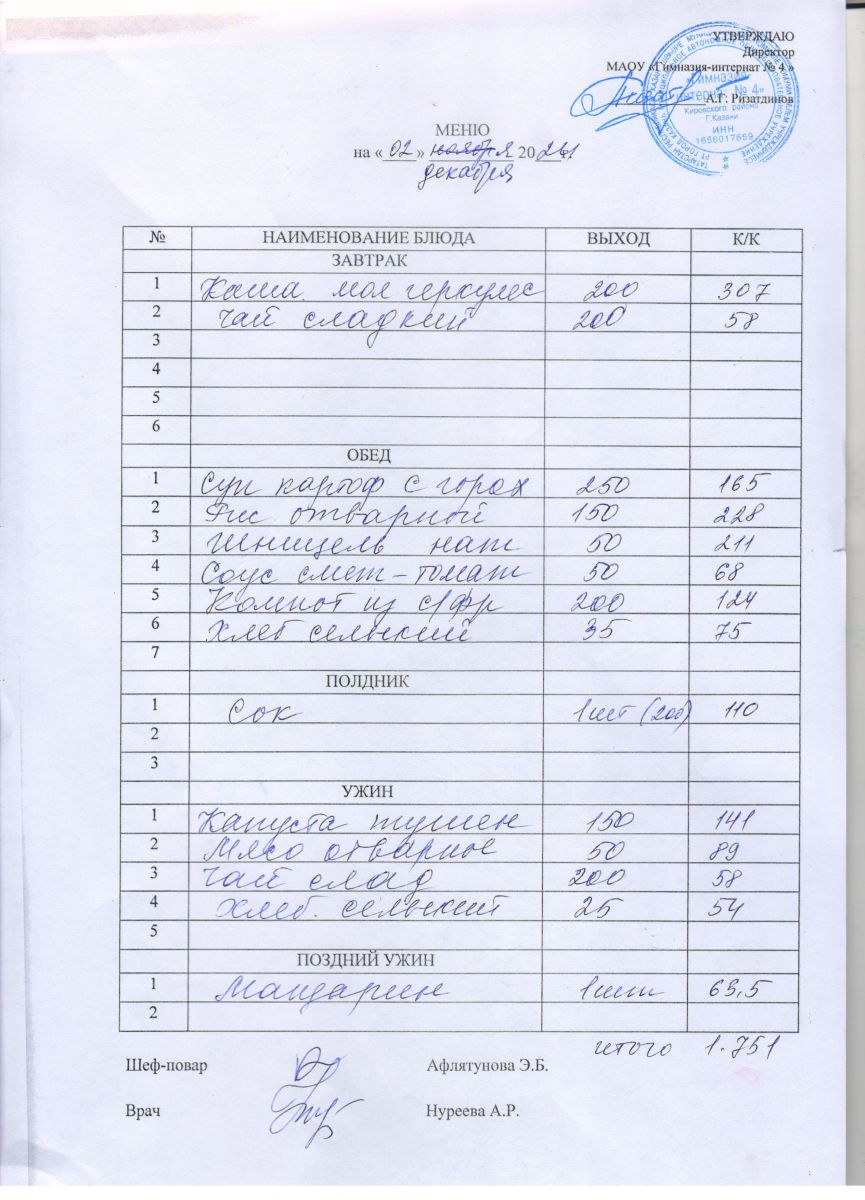 УТВЕРЖДАЮ
Директор
МАОУ «Гимназия-интернат № 4 »
А.Г. Ризатдинов
«Гимназия
интернат № 4»
Кировского района
Г.Казани
ИНН
1656017659
МЕНЮ
на « 02 » ноября 20 21
декабря
№ НАИМЕНОВАНИЕ БЛЮДА ВЫХОД К/К
ЗАВТРАК
1 Каша мол геркулес 200 307
2 Чай сладкий 200 58
3
4
5
6
ОБЕД
1 Суп картоф с горох 250 165
2 Рис отварной 150 228
3 Шницель нат 50 211
4 Соус смет-томат 50 68
5 Компот из с/фр 200 124
6 Хлеб сельский 35 75
7
ПОЛДНИК
1 Сок 1шт (200) 110
2
3
УЖИН
1 Капуста тушен 150 141
2 Мясо отварное 50 89
3 Чай слад 200 58
4 Хлеб. сельский 25 54
5
ПОЗДНИЙ УЖИН
1 Мандарин 1шт 63,5
2
итого 1.751
Шеф-повар Афлятунова Э.Б.
Врач Нуреева А.Р.